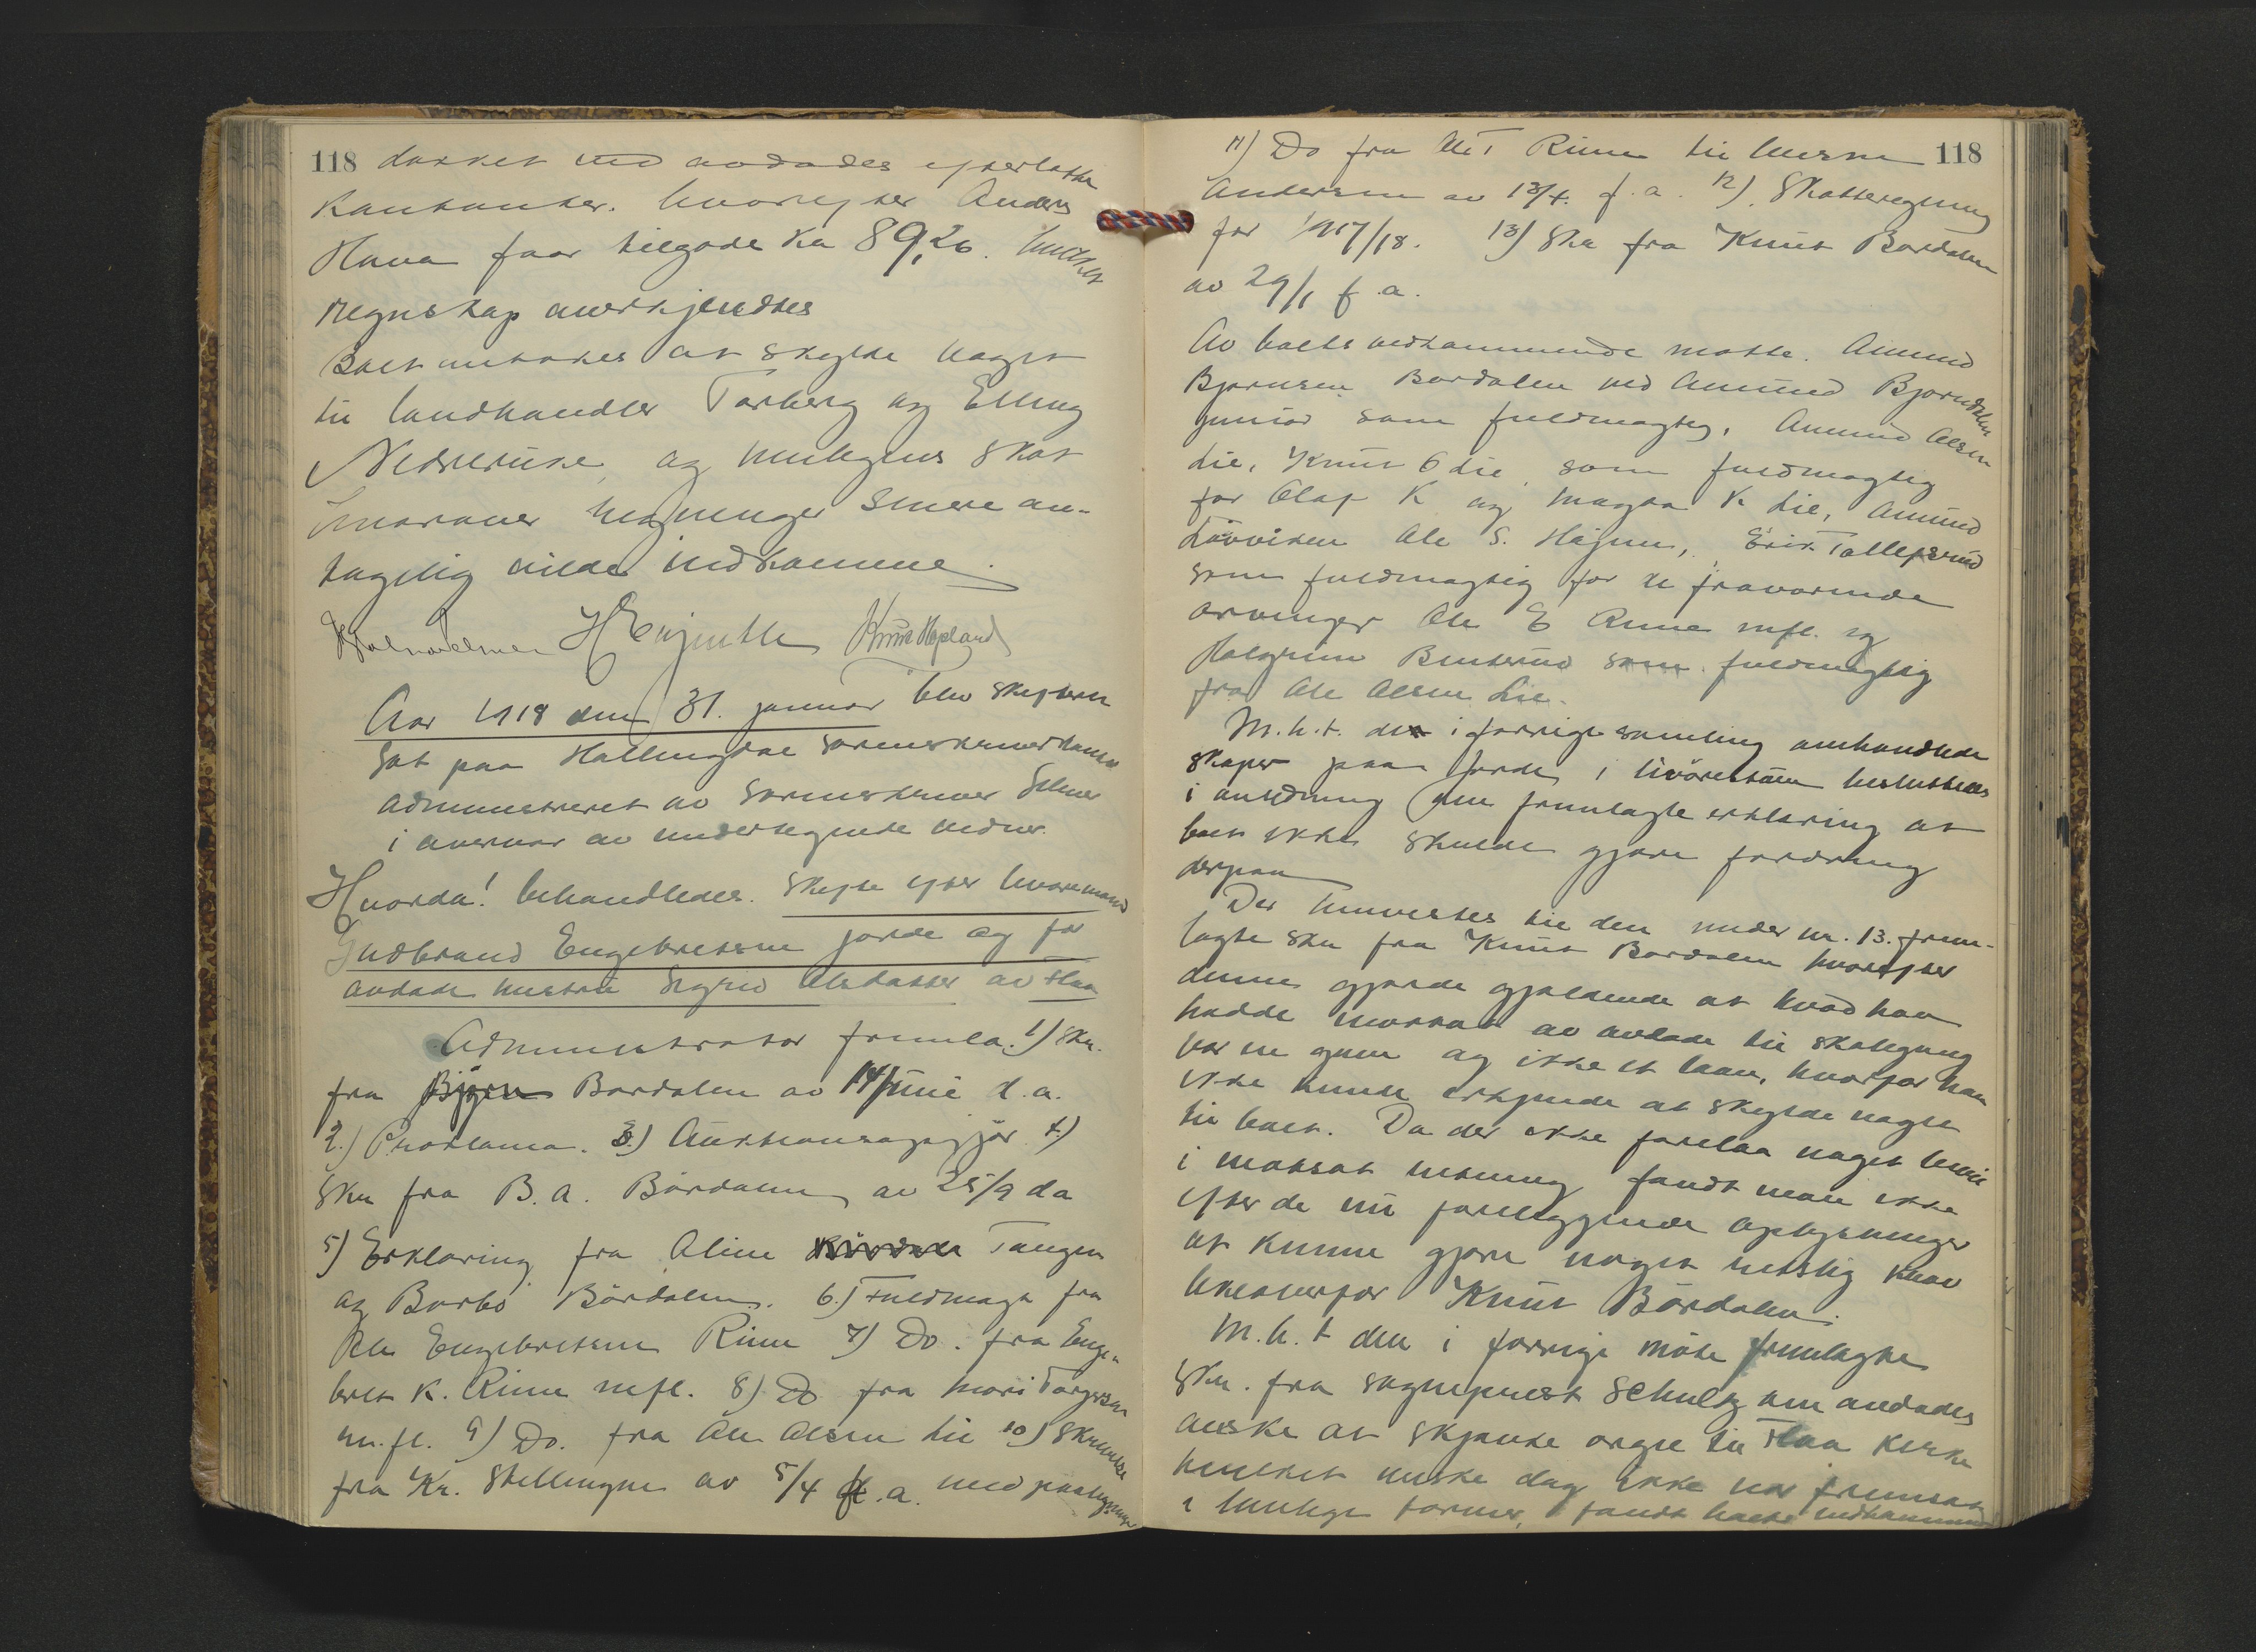 118 dækket med avdødes efterlatte
kontanter. hvorefter Anders
Hava faar tilgode Kr 89,26.
regnskap anerkjendtes
Boet antokes at skylde noget
til landhandler Torberg og Elling
Nedreruste og muligens skat
hvorover regninger senere an-
tagelig vilde indkomme.
H Engjentte Knut Hopland
Aar 1918 den 31. januar blev skifteret
sat paa Hallingdal sorenskriverkontor
administreret av sorenskriver
i nærvær av undertegnede vidner.
Hvorda! behandledes. Skifte efter baaremand
Gudbrand Engebretsen jorde og før
avdøde hustru Sigrid Olsdatter av Flaa
Administrator fremla. 1) Skr.
fra Björn Bordalen av 14/ juni d.a.
2.) Proklama. 3.) Auktionsopgjör 4.)
Skr fra B. A. Bördalen av 25/9 da
5) Erklæring fra Aline Tangen
og Barbo Bördalen. 6.) Fuldmagt fra
Ole Engebretsen Rime 7) Do. fra Enge-
bret K. Rime mfl. 8) Do fra Mari Torgersen
m.fl. 9) Do. fra Ole Olsen Lie 10) Skrivelse
fra Kr. Skellingen av 5/4 f.a. med paategninger
118
11) Do fra Ole T Rime til
Andersen av 13/4. f.a. 12). Skatteregning
for 1917/18. 13) Skr fra Knut Bordalen
av 29/1 f.a.
Av boets vedkommende mötte. Amund
Bjørnsen Bordalen ved Amund Bjorndalen
junior som fuldmægtig, Amund Olsen
Lie, Knut O Lie som fuldmægtig
for Olaf K og Magna K Lie, Amund
Lövviken Ole S. Högne, Erik Tollefsrud
som fuldmægtig for de fraværende
arvinger Ole E Rime mfl. og
Halgrim Bentsrud som fuldmægtig
fra Ole Olsen Lie.
M.h.t. den i forrige samling omhandlede
skaper paa jorde, i livörestuen besluttedes
i anledning den fremlagte erklæring at
boet ikke skulde gjøre fordring
derpaa
Der henvistes til den under nr. 13. frem-
lagte skr fra Knut Bordalen hvorefter
denne gjorde gjældende at hvad han
hadde mottat av avdøde til skolegang
var en gave og ikke et laan, hvorfor han
ikke kunde erkjende at skylde noget
til boet. Da der ikke forelaa noget bevis
i motsat retning fandt man ikke
efter de nu foreliggende oplysninger
at kunne gjøre noget retslig krav
likeoverfor Knut Bördalen.
M.h.t den i forrige möte fremlagte
Skr. fra sogneprest Schultz om avdødes
ønske at skjænke orgel til Flaa kirke
hvilket ønske dog ikke var fremsat
i lovlige former, fandt boets vedkommende